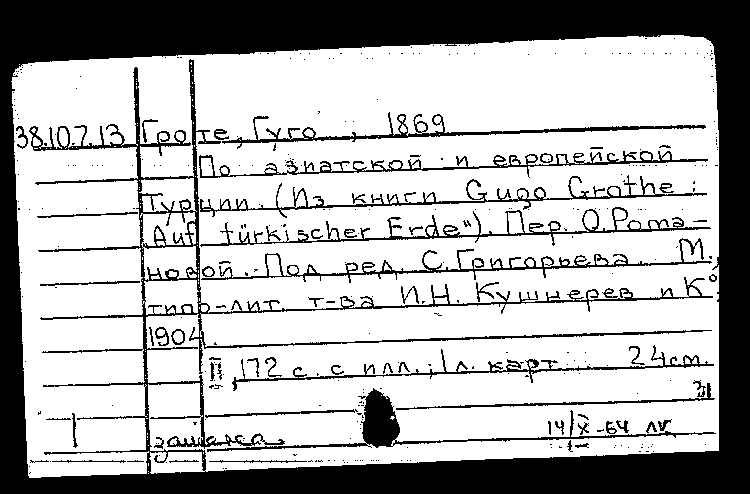 38.10.7.13 Гроте, Гуго , 1869
По азиатской и европейской
Турции. (Из книги Gugo Grothe:
„Auf türkischer Erde"). Пер. О.Рома-
новой.-Под ред. С.Григорьева. М.,
типо-лит. т-ва И.Н. Кушнерев и К°,
1904.
II, 172 с. с илл.; 1л. карт. 24см.
14/X-64